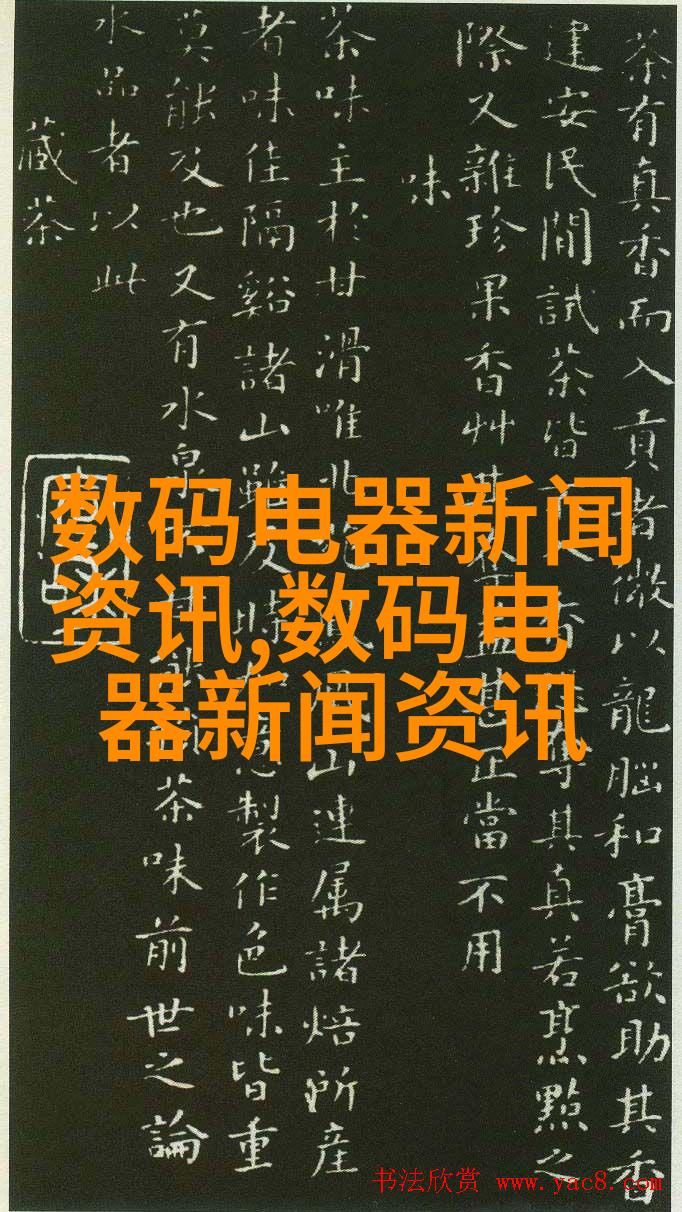 茶有真香而入貢者微以龍腦和膏欲助其香
建安民間試茶皆
奪其真若烹點之
際又雜珍果香艸其
正當不用
味
茶味主於甘滑唯北
山連属諸焙所產
者味佳隔谿諸山雖及時
製作色味皆重
莫能及也又有水泉
茶味前世之論
水品者以此
藏茶
数码电器新闻
资讯,数码电
器新闻资讯
书法欣赏 www.yac8.com